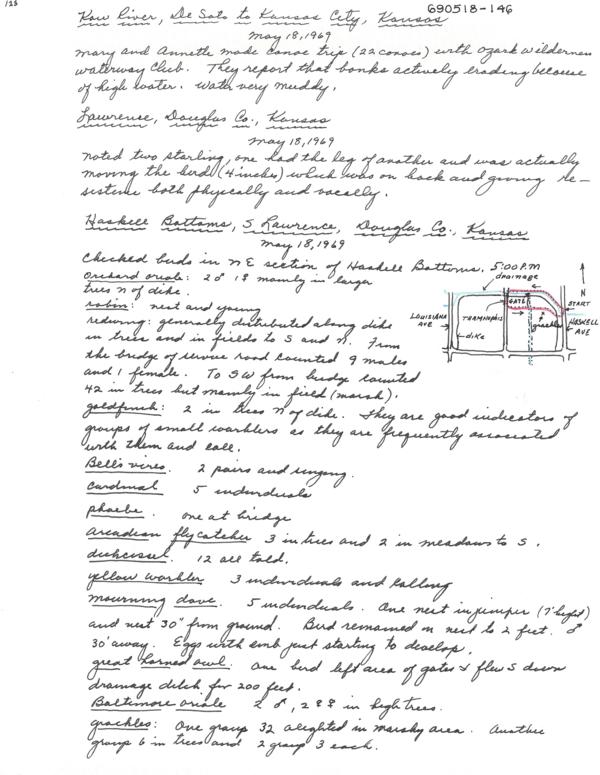 128
690518-146
Kaw River, De Soto to Kansas City, Kansas
May 18, 1969
Mary and Annette made canoe trip (22 canoes) with Ozark Wilderness
Waterway Club. They report that banks actively eroding because
of high water. Water very muddy.
Lawrence, Douglas Co., Kansas
May 18, 1969
Noted two starling, one had the leg of another and was actually
moving the bird (4 inches) which was on back and giving re-
sistence both physically and vocally.
Haskell Bottoms, S Lawrence, Douglas Co., Kansas
May 18, 1969
Checked birds in NE section of Haskell Bottoms. 5:00 P.M
Orchard oriole: 2♂ 1♀ mainly in larger
trees N of dike.
robin: nest and young
redwing: generally distributed along dike
in trees and in fields to S and N. From
the bridge of service road counted 9 males
and 1 female. To SW from bridge counted
42 in trees but mainly in field (marsh).
goldfinch: 2 in trees N of dike. They are good indicators of
groups of small warblers as they are frequently associated
with them and call.
Bell's vireo. 2 pairs and singing.
Cardinal 5 individuals
phoebe. one at bridge
Arcadian flycatcher 3 in trees and 2 in meadows to S.
dickcissel. 12 all told.
yellow warbler 3 individuals and calling
Mourning dove. 5 individuals. One nest in juniper (7' high)
and nest 30" from ground. Bird remained on nest to 2 feet. ♂
30' away. Eggs with emb just starting to develop.
great horned owl. One bird left area of gates & flew S down
drainage ditch for 200 feet.
Baltimore oriole 2 ♂, 2 ♀♀ in high trees.
grackles: One group 32 alighted in marshy area. Another
group 6 in trees and 2 group 3 each.
drainage
N
GATE
START
LOUISIANA
AVE
grackles
HASKELL
AVE
dike